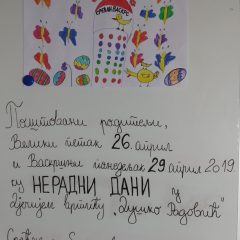 СРЕЋАН ВАСКРС
Поштовани родитељи,
Велики петак 26 април
и Васкршњи понедељак 29 април 2019
су НЕРАДНИ ДАНИ у
дечијем вртићу "Душко Радовић"